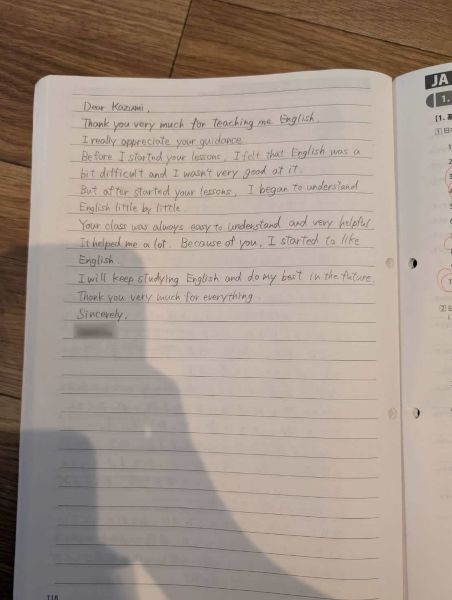 Dear Kazumi,
Thank you very much for teaching me English.
I really appreciate your guidance.
Before I started your lessons, I felt that English was a
bit difficult and I wasn't very good at it.
But after started your lessons, I began to understand
English little by little.
Your class was always easy to understand and very helpful
It helped me a lot. Because of you, I started to like
English.
I will keep studying English and do my best in the future.
Thank you very much for everything.
Sincerely,
118
JA
1.
[1.